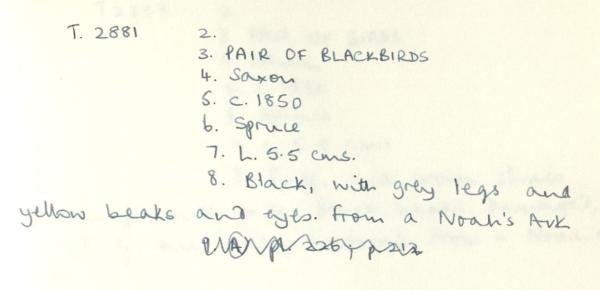 T. 2881 2.
3. PAIR OF BLACKBIRDS
4. Saxon
5. c. 1850
6. Spruce
7. L. 5.5 cms.
8. Black, with grey legs and
yellow beaks and eyes. From a Noah's Ark